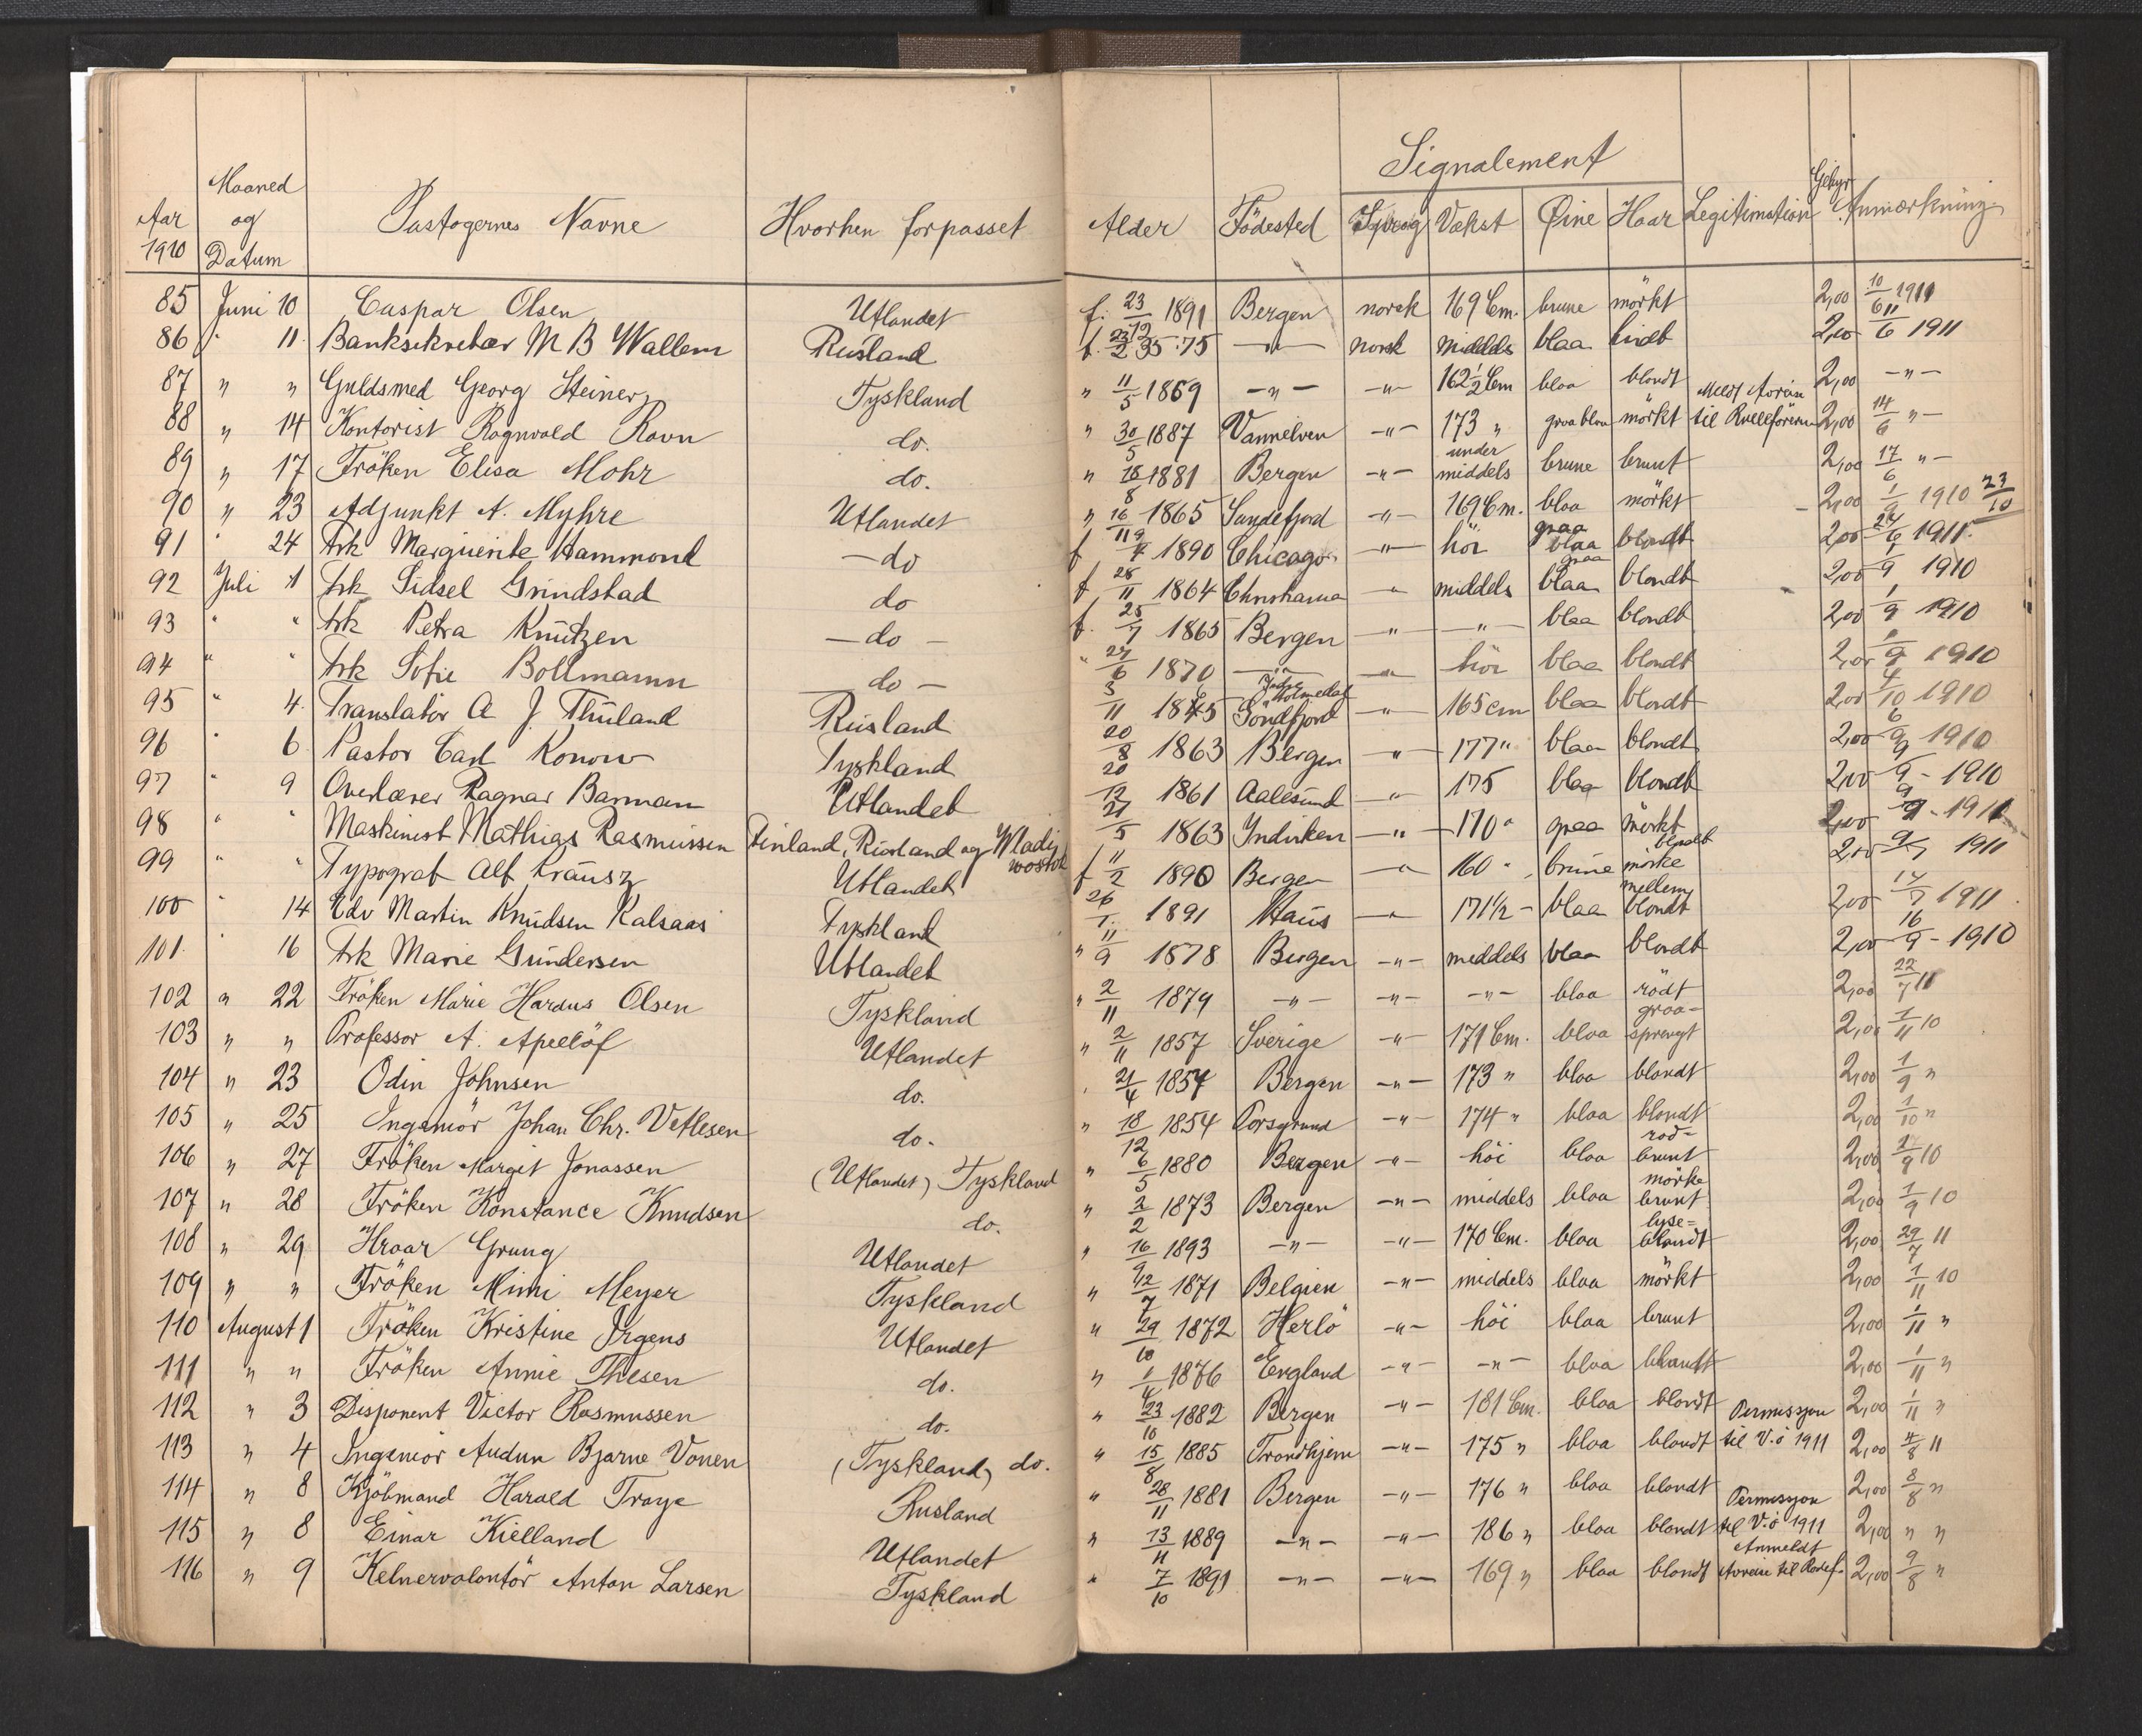 Signalement
Aar 1910 Maaned og Datum Pastagernes Navne Hvorhen forpasset Alder Födested Sprog Vækst Øine Haar Legitimation Gebyr Anmærkning
85 Juni 10 Caspar Olsen Utlandet f. 23/12 1891 Bergen norsk 169 Cm. brune mörkt 2,00 10/6 1911
86 " 11 Banksekretær M B Wallem Rusland f. 75 —"— norsk middels blaa 2,00 11/6 1911
87 " " Guldsmed Georg Steiner Tyskland " 11/5 1869 —"— —"— 162½ Cm blaa blondt 2,00 —"—
88 " 14 Kontorist Ragnvald Ravn do. " 30/5 1887 Vannelven —"— 173 " graablaa mörkt Meldt Avreise til Rulleföreren 2,00 14/6 "—
89 " 17 Fröken Elisa Mohr do. " 18/8 1881 Bergen —"— under middels brune brunt 2,00 17/6 "—
90 " 23 Adjunkt A. Myhre Utlandet " 16/11 1865 Sandefjord —"— 169 Cm. blaa mörkt 2,00 1/9 1910 23/10
91 " 24 Frk Marguerite Hammond —do f 9/4 1890 Chicago —"— höi graa blaa blondt 2,00 24/6 1911
92 Juli 1 Frk Sidsel Grindstad do f 28/11 1864 Christiania —"— middels graa blaa blondt 2,00 1/9 1910
93 " " Frk Petra Knutzen —do— f. 25/7 1865 Bergen —"— —"— blaa blondt 2,00 1/9 1910
94 " " Frk Sofie Bollmann —do— " 27/6 1870 —"— —"— höi blaa blondt 2,00 1/9 1910
95 " 4. Translatör A J Thuland Rusland 3/11 1845 Indre Holmedal Söndfjord —"— 165 cm blaa blondt 2,00 4/10 1910
96 " 6. Pastor Carl Konow Tyskland 20/8 1863 Bergen —"— 177 " blaa blondt 2,00 6/9 1910
97 " 9 Overlærer Ragnar Barman Utlandet 20/12 1861 Aalesund —"— 175 blaa blondt 2,00 9/9 - 1910
98 " " Maskinist Mathias Rasmussen Finland, Rusland og Wladiwostok 21/5 1863 Indviken —"— 170 " graa mörkt 2,00
99 " " Typograf Alf Krausz Utlandet f 11/2 1890 Bergen —"— 160 " brune mörke blondt 2,00 9/7 1911
100 " 14 Edv Martin Knudsen Kalsaas Tyskland 26/1 1891 Haus —"— 171½ - blaa mellem blondt 2,00 14/7 1911
101. " 16 Frk Marie Gundersen Utlandet " 11/9 1878 Bergen —"— middels blaa blondt 2,00 16/9 - 1910
102 " 22 Fröken Marie Hardus Olsen Tyskland " 2/11 1879 —"— —"— —"— blaa rödt 2,00 22/7 11
103 " " Professor A. Apellöf Utlandet " 2/11 1857 Sverige —"— 171 Cm. blaa graa-sprengt 2,00 1/11 10
104 " 23 Odin Johnsen do. " 21/4 1854 Bergen —"— 173 " blaa blondt 2,00 1/9 "
105 " 25 Ingeniör Johan Chr. Vetlesen do. " 18/12 1854 Porsgrund —"— 174 " blaa blondt 2,00 1/10 "
106 " 27 Fröken Margit Jonassen (Utlandet) Tyskland " 6/5 1880 Bergen —"— höi blaa rod-brunt 2,00 27/9 10
107 " 28 Fröken Konstance Knudsen do. " 2/2 1873 Bergen —"— middels blaa mörke brunt 2,00 1/9 10
108 " 29 Hroar Grung Utlandet " 16/9 1893 —"— —"— 170 Cm. blaa lyse= blondt 2,00 29/7 11
109 " " Fröken Mimi Meyer Tyskland " 12/7 1871 Belgien —"— middels blaa mörkt 2,00 1/11 10
110 August 1 Fröken Kristine Irgens Utlandet " 29/10 1872 Herlö —"— höi blaa brunt 2,00 1/11 "
111 " " Fröken Annie Thesen do. " 1/4 1876 England —"— —"— blaa blandt 2,00 1/11 "
112 " 3 Disponent Victor Rasmussen do. " 23/10 1882 Bergen —"— 181 Cm. blaa blondt 2,00 1/11 "
113 " 4 Ingeniör Audun Bjarne Vonen (Tyskland) do. " 15/8 1885 Trondhjem —"— 175 " blaa blondt Permissjon til V.ö 1911 2,00 4/8 11
114 " 8 Kjöbmand Harald Traye Rusland " 28/11 1881 Bergen —"— 176 " blaa blondt 2,00 8/8 "
115 " 8 Einar Kielland Utlandet " 13/11 1889 —"— —"— 186 " blaa blondt Permisjon til V.ö 1911 2,00 " "
116 " 9 Kelnervolontör Anton Larsen Tyskland " 7/10 1891 —"— —"— 169 " blaa blondt Anmeldt Avreise til Rodef. 2,00 9/8 "